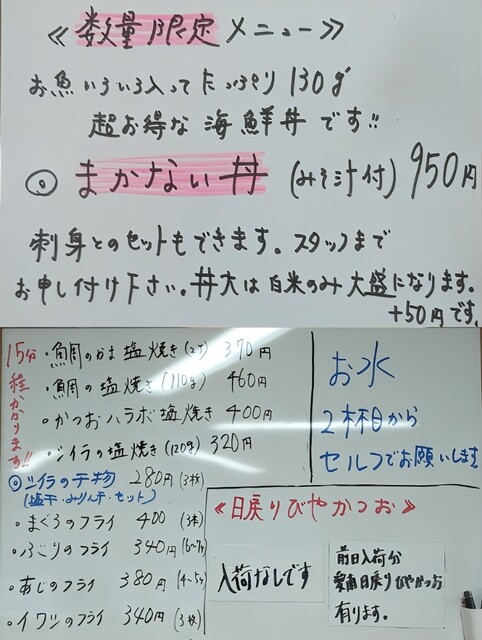 ≪数量限定メニュー≫
お魚いろいろ入ってたっぷり130g
超お得な海鮮丼です!!
◎まかない丼(みそ汁付)950円
刺身とのセットもできます。スタッフまで
お申し付け下さい。丼大は白米のみ大盛になります。
+50円です。
15分程かかります!!
・鯛のかま塩焼き(2ケ) 370円
・鯛の塩焼き(110g) 460円
・かつおハラボ塩焼き 400円
・シイラの塩焼き(120g) 320円
◎シイラの干物 280円(3枚)
(塩干・みりん干・セット)
・まぐろのフライ 400(3本)
・ぶこりのフライ 340円(6〜7ケ)
・あじのフライ 380円(4〜5ケ)
・イワシのフライ 340円(3枚)
お水
2杯目から
セルフでお願いします
≪日戻りびやかつお≫
入荷なしです
前日入荷分
愛南日戻りびやかつお
有ります。